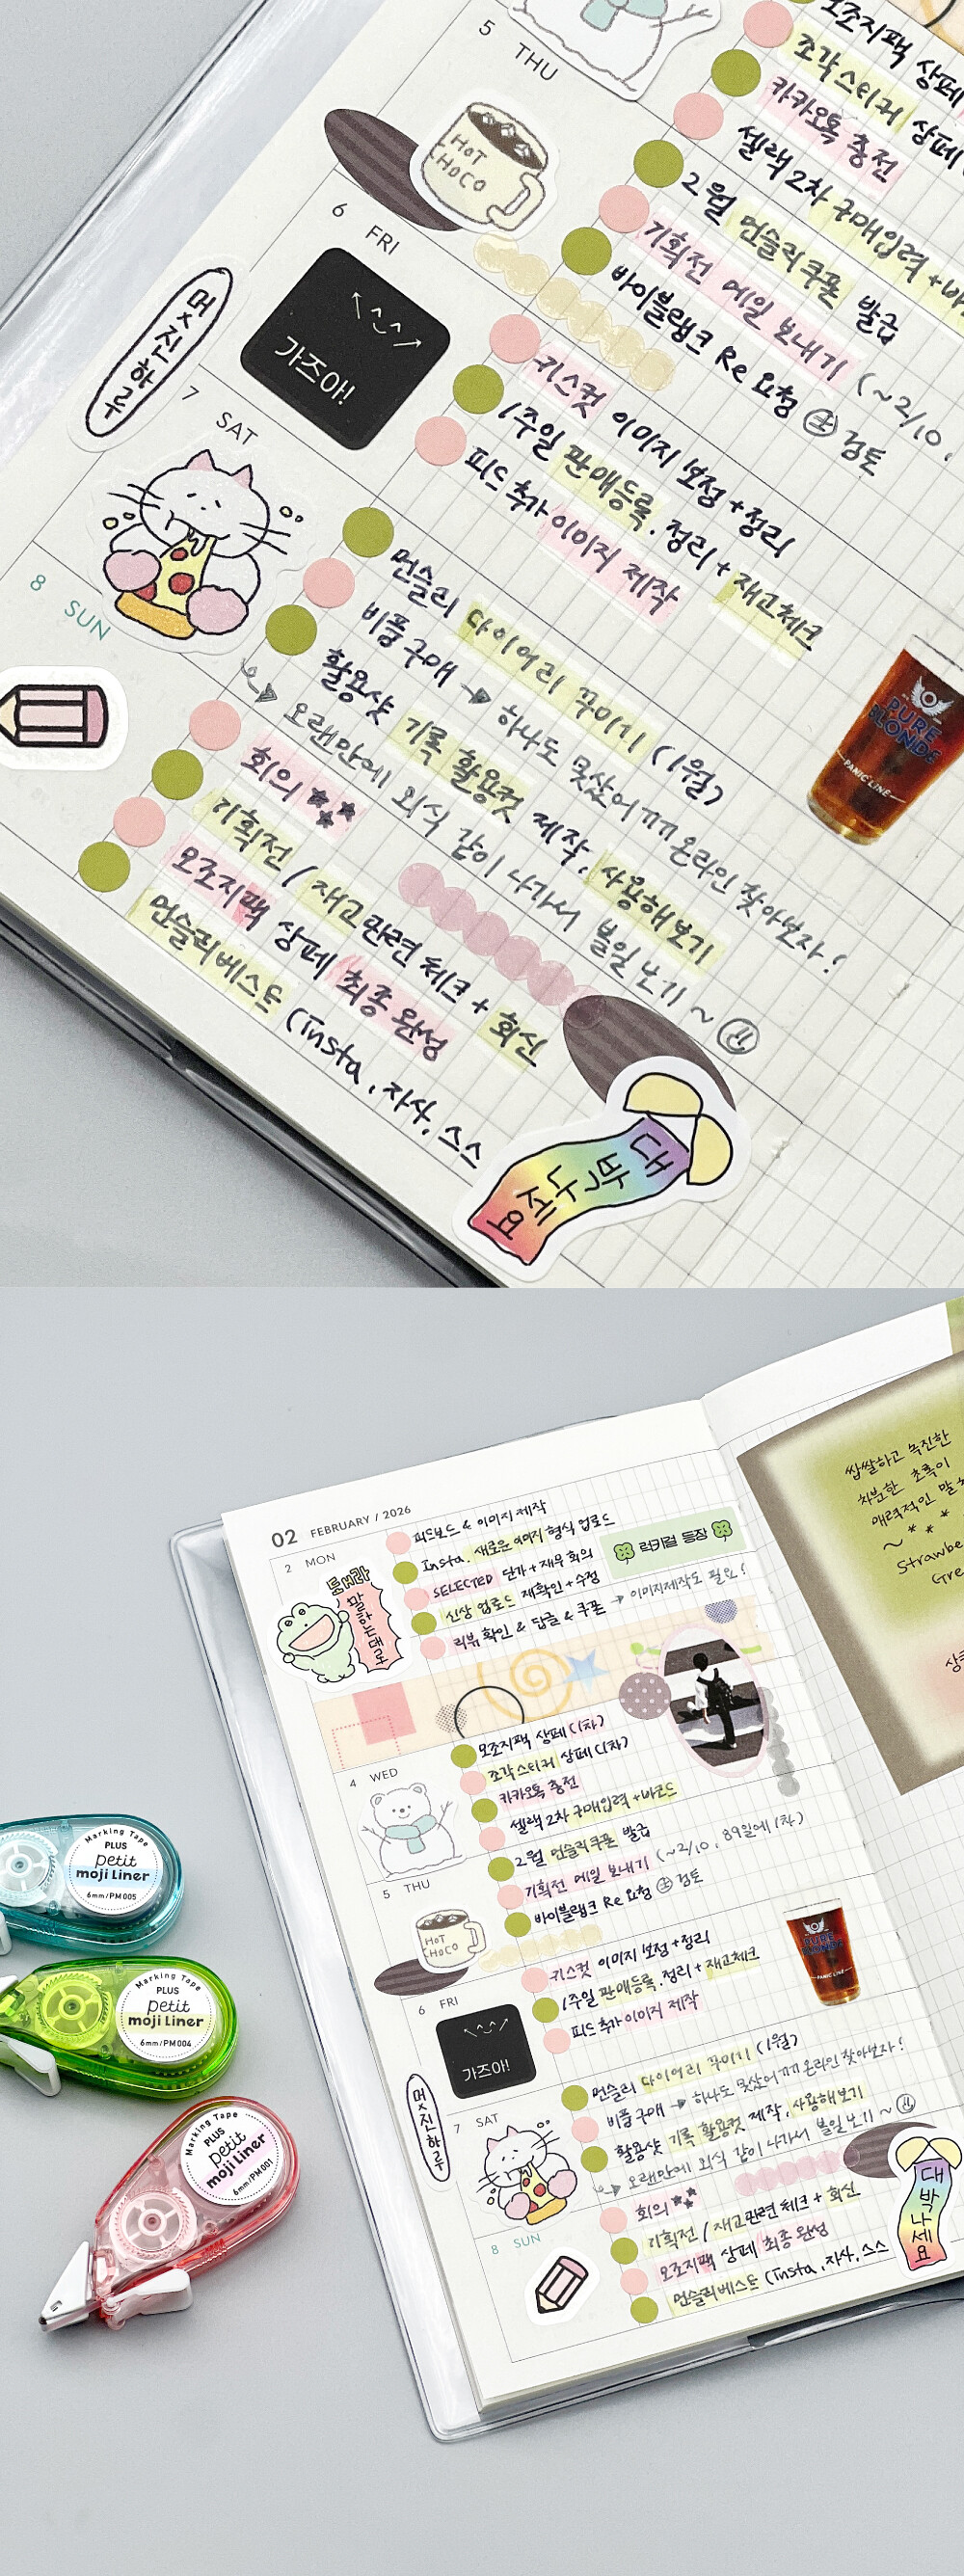 5 THU
오조지팩 상페
조각스티커 상페
카카오톡 충전
셀랙 2차 구매입력 +바
2월 먼슬리쿠폰 발급
기획전 메일 보내기 (~2/10,
바이블랭크 Re 요청 검토
HOT
CHOCO
6 FRI
가즈아!
키스컷 이미지 보정+정리
1주일 판매등록. 정리+재고체크
피드 추가 이미지 제작
멋진하루
7 SAT
먼슬리 다이어리 꾸미기 (1월)
비품구매 → 하나도 못샀어ㄲㄲ 온라인 찾아보자!
활용샷 기록 활용컷 제작, 사용해보기
오랜만에 외식 같이 나가서 볼일 보기~
PURE
BLONDE
PANIC LINE
8 SUN
회의
기획전/재고관련 체크+회신
오조지팩 상페 최종 완성
먼슬리베스트 (Insta, 자사, 스스
대박나세요
02 FEBRUARY / 2026
2 MON
피드보드 & 이미지 제작
Insta. 새로운 이미지 형식 업로드
SELECTED 단가+재우 회의
신상 업로드 재확인+수정
리뷰 확인 & 답글 & 쿠폰 → 이미지제작도 필요!
럭키걸 등장
4 WED
오조지팩 상페 (1차)
조각스티커 상페 (1차)
카카오톡 충전
셀랙 2차 구매입력 +바코드
2월 먼슬리쿠폰 발급
5 THU
기획전 메일 보내기 (~2/10, 89일에 1차)
바이블랭크 Re 요청 검토
HOT
CHOCO
6 FRI
가즈아!
키스컷 이미지 보정+정리
1주일 판매등록. 정리+재고체크
피드 추가 이미지 제작
PURE
BLONDE
PANIC LINE
멋진하루
7 SAT
먼슬리 다이어리 꾸미기 (1월)
비품구매 → 하나도 못샀어ㄲㄲ 온라인 찾아보자!
활용샷 기록 활용컷 제작, 사용해보기
오랜만에 외식 같이 나가서 볼일 보기~
8 SUN
회의
기획전/재고관련 체크+회신
오조지팩 상페 최종 완성
먼슬리베스트 (Insta, 자사, 스스
대박나세요
쌉쌀하고 녹진한
차분한 초록이
매력적인 말차
Strawbe
Gre
Marking Tape
PLUS
petit
moji Liner
6mm/PM005
Marking Tape
PLUS
petit
moji Liner
6mm/PM004
Marking Tape
PLUS
petit
moji Liner
6mm/PM001